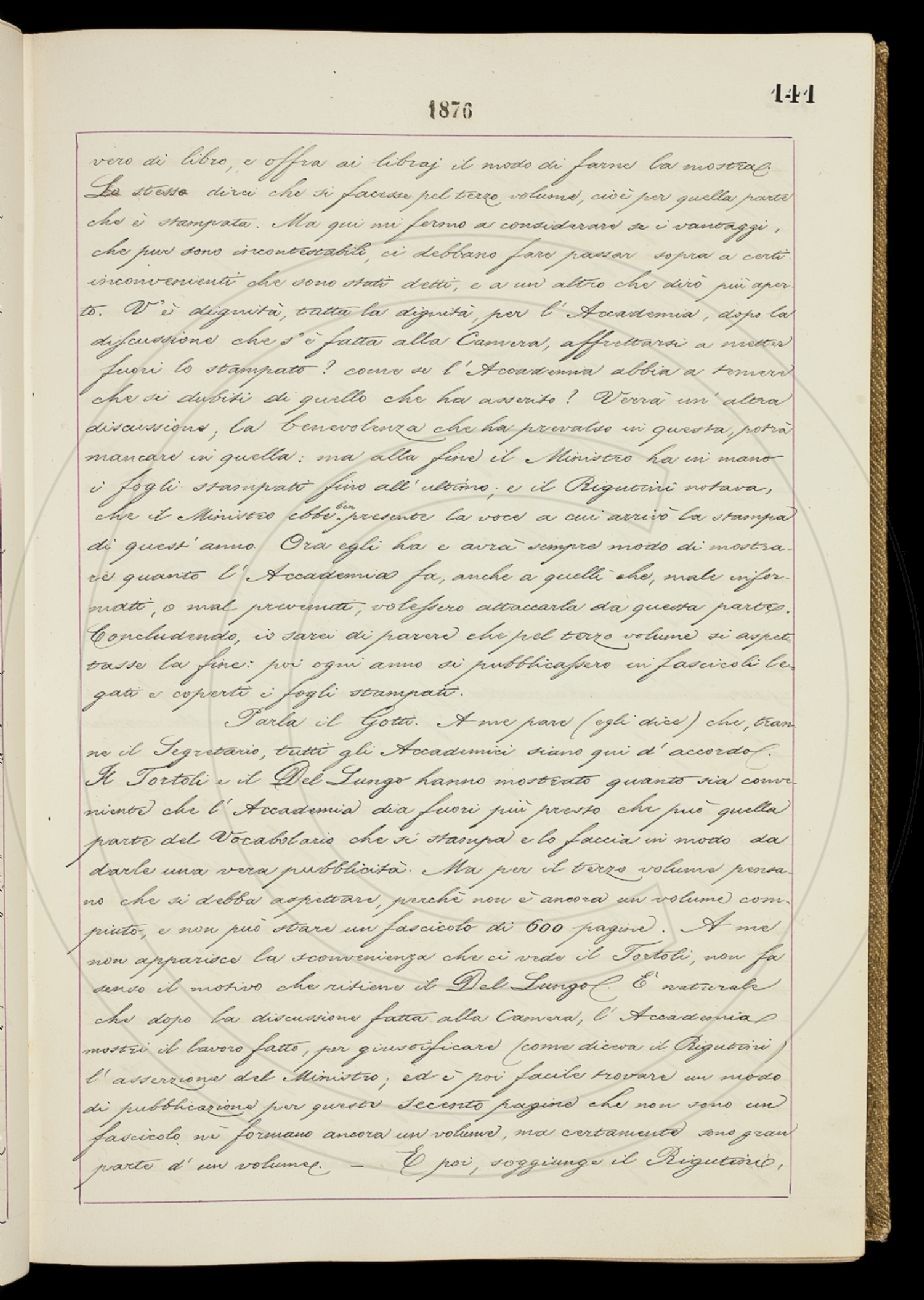 141
1876
vero di libro, e offra ai libraj il modo di farne la mostra.
Lo stesso direi che si facesse pel terzo volume, cioè per quella parte
che è stampata. Ma qui mi fermo a considerare se i vantaggi,
che pur sono incontestabili, ci debbano fare passar sopra a certi
inconvenienti che sono stati detti, e a un altro che dirò più aper-
to. V'è dignità, tutta la dignità, per l'Accademia, dopo la
discussione che s'è fatta alla Camera, affrettarsi a metter
fuori lo stampato? come se l'Accademia abbia a temere
che si dubiti di quello che ha asserito? Verrà un'altra
discussione; la benevolenza che ha prevalso in questa, potrà
mancare in quella: ma alla fine il Ministro ha in mano
i fogli stampati fino all'ultimo; e il Rigutini notava,
che il Ministro ebbe ben presente la voce a cui arrivò la stampa
di quest'anno. Ora egli ha e avrà sempre modo di mostra-
re quanto l'Accademia fa, anche a quelli che, male infor-
mati, o mal prevenuti, volessero attaccarla da questa parte.
Concludendo, io sarei di parere che pel terzo volume si aspet-
tasse la fine: poi ogni anno si pubblicassero in fascicoli le-
gati e coperti i fogli stampati.
Parla il Gotti. A me pare (egli dice) che, tran-
ne il Segretario, tutti gli Accademici siano qui d'accordo.
Il Tortoli e il Del Lungo hanno mostrato quanto sia conve-
niente che l'Accademia dia fuori più presto che può quella
parte del Vocabolario che si stampa e lo faccia in modo da
darle una vera pubblicità. Ma per il terzo volume pensa-
no che si debba aspettare, perchè non è ancora un volume com-
piuto, e non può stare un fascicolo di 600 pagine. A me
non apparisce la sconvenienza che ci vede il Tortoli, non fa
senso il motivo che ritiene il Del Lungo. È naturale
che dopo la discussione fatta alla Camera, l'Accademia
mostri il lavoro fatto, per giustificare (come diceva il Rigutini)
l'asserzione del Ministro; ed è poi facile trovare un modo
di pubblicazione per queste secento pagine che non sono un
fascicolo, nè formano ancora un volume, ma certamente sono gran
parte d'un volume. — E poi, soggiunge il Rigutini,